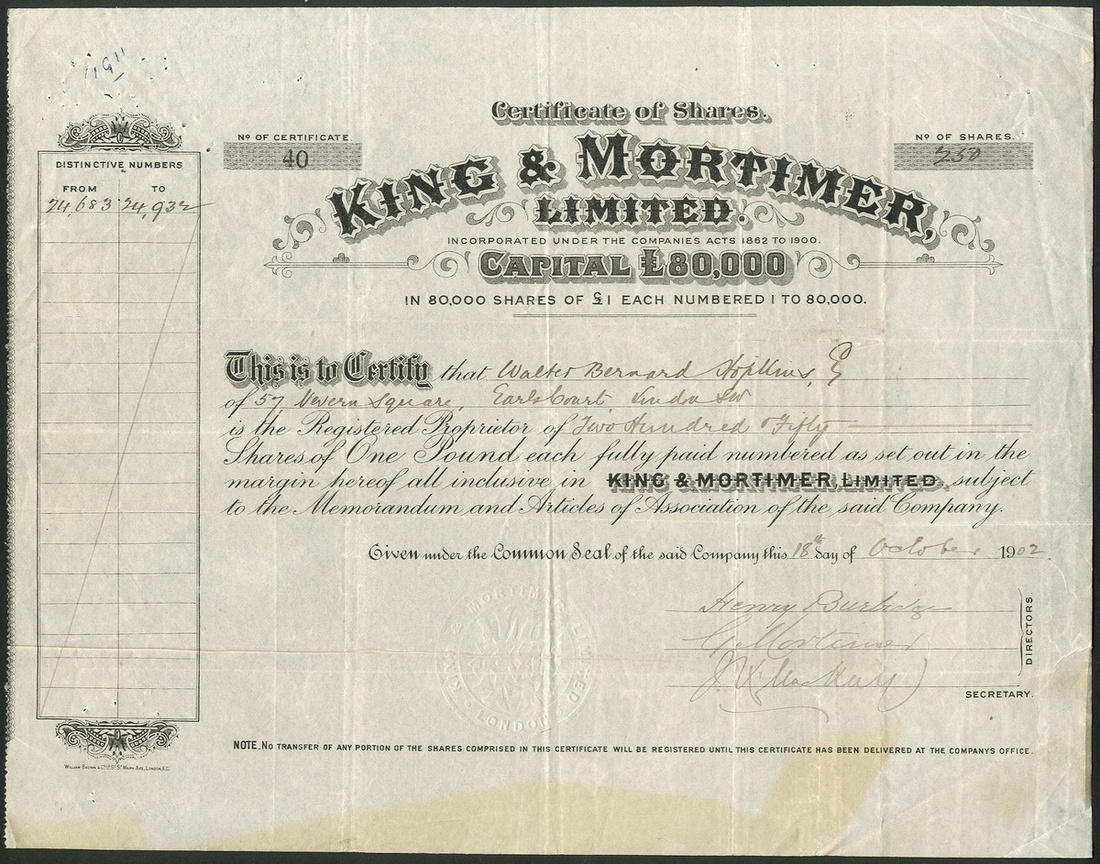 "G"
Certificate of Shares.
Nº OF CERTIFICATE.
40
Nº OF SHARES.
250
KING & MORTIMER,
LIMITED.
INCORPORATED UNDER THE COMPANIES ACTS 1862 TO 1900.
CAPITAL £80,000
IN 80,000 SHARES OF £1 EACH NUMBERED 1 TO 80,000.
DISTINCTIVE NUMBERS
FROM TO
24,683 24,932
This is to Certify that Walter Bernard Hopkins,
of 57 Nevern Square, Earls Court London SW
is the Registered Proprietor of Two Hundred & Fifty
Shares of One Pound each fully paid numbered as set out in the
margin hereof all inclusive in KING & MORTIMER, LIMITED, subject
to the Memorandum and Articles of Association of the said Company.
Given under the Common Seal of the said Company this 18th day of October 1902.
KING & MORTIMER LIMITED
LONDON
Henry Burbidge
G Mortimer
DIRECTORS.
SECRETARY.
NOTE. NO TRANSFER OF ANY PORTION OF THE SHARES COMPRISED IN THIS CERTIFICATE WILL BE REGISTERED UNTIL THIS CERTIFICATE HAS BEEN DELIVERED AT THE COMPANYS OFFICE.